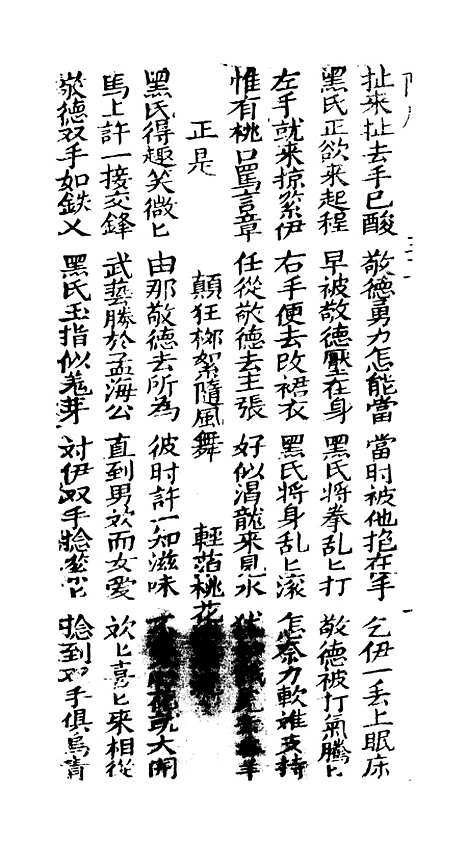 扯來扯去手已酸 敬德勇力怎能當 當时被他抱在手 乞伊一丢上眠床
黑氏正欲來起程 早被敬德壓在身 黑氏將拳乱匕打 敬德被打氣騰匕
左手就來掠 伊 右手便去改裙衣 黑氏將身乱匕滾 怎奈力軟难支持
惟有桃口罵言章 任從敬德去主張 好似渴龍來見水
正是 顛狂柳絮隨風舞 輕范桃花
黑氏得趣笑微匕 由那敬德去所為 彼时許一知滋味 花就大開
馬上許一接交鋒 武藝勝於孟海公 直到男欢而女愛 欢匕喜匕來相從
敬德双手如鉄乂 黑氏玉指似羗芽 対伊双手捻 捻到双手俱烏青